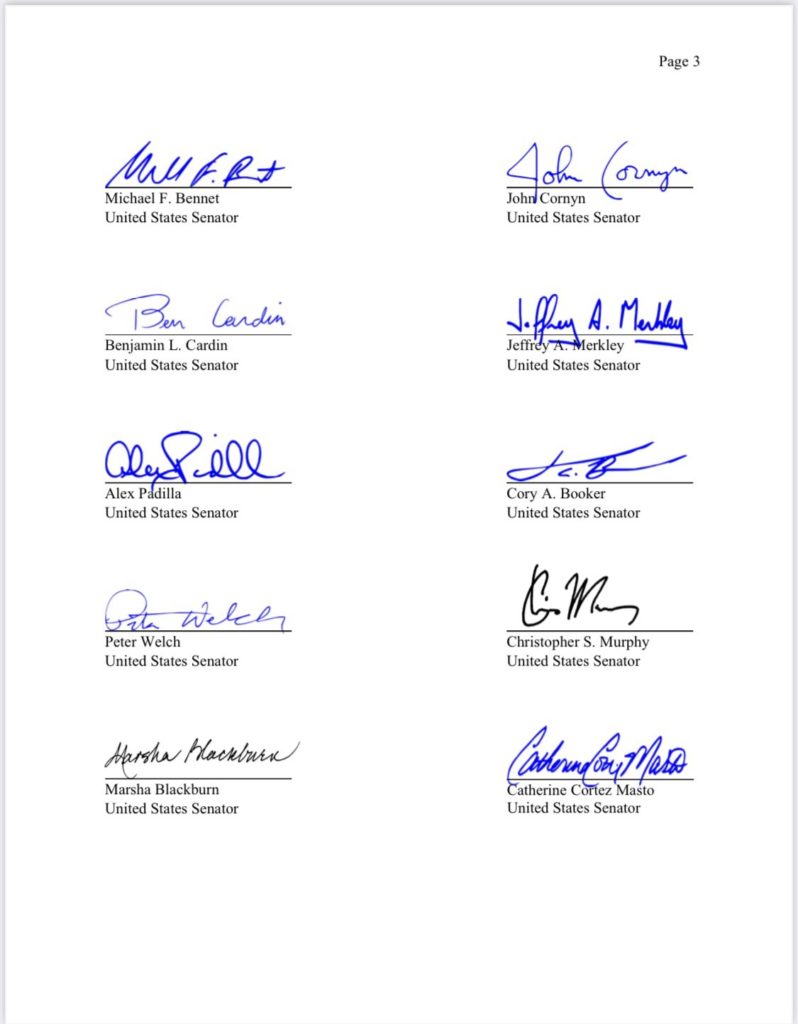 Page 3
Mill F. Bennet
John Cornyn
Michael F. Bennet
John Cornyn
United States Senator
United States Senator
Ben Cardin
Jeffrey A. Merkley
Benjamin L. Cardin
Jeffrey A. Merkley
United States Senator
United States Senator
Alex Padilla
Alex Padilla
Cory A. Booker
United States Senator
United States Senator
Peter Welch
Peter Welch
Christopher S. Murphy
United States Senator
United States Senator
Marsha Blackburn
Catherine Cortez Masto
Marsha Blackburn
Catherine Cortez Masto
United States Senator
United States Senator